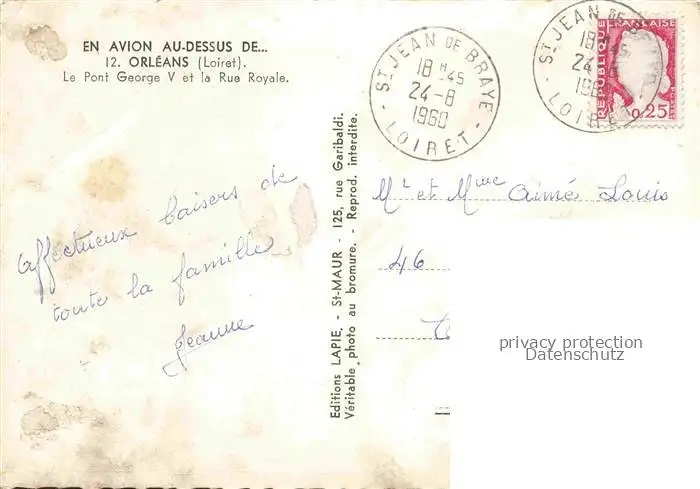 EN AVION AU-DESSUS DE...
12. ORLÉANS (Loiret).
Le Pont George V et la Rue Royale.
ST JEAN DE BRAYE
18 H 45
24-8
1960
LOIRET
ST JEAN DE BRAYE
18 H 45
24-8
LOIRET
RÉPUBLIQUE FRANÇAISE
0,25
POSTES
Affectueux baisers de
toute la famille
Jeanne
Editions LAPIE, - St-MAUR - 125, rue Garibaldi.
Véritable photo au bromure. - Reprod. interdite.
Mr et Mme Aimé Louis
46
privacy protection
Datenschutz